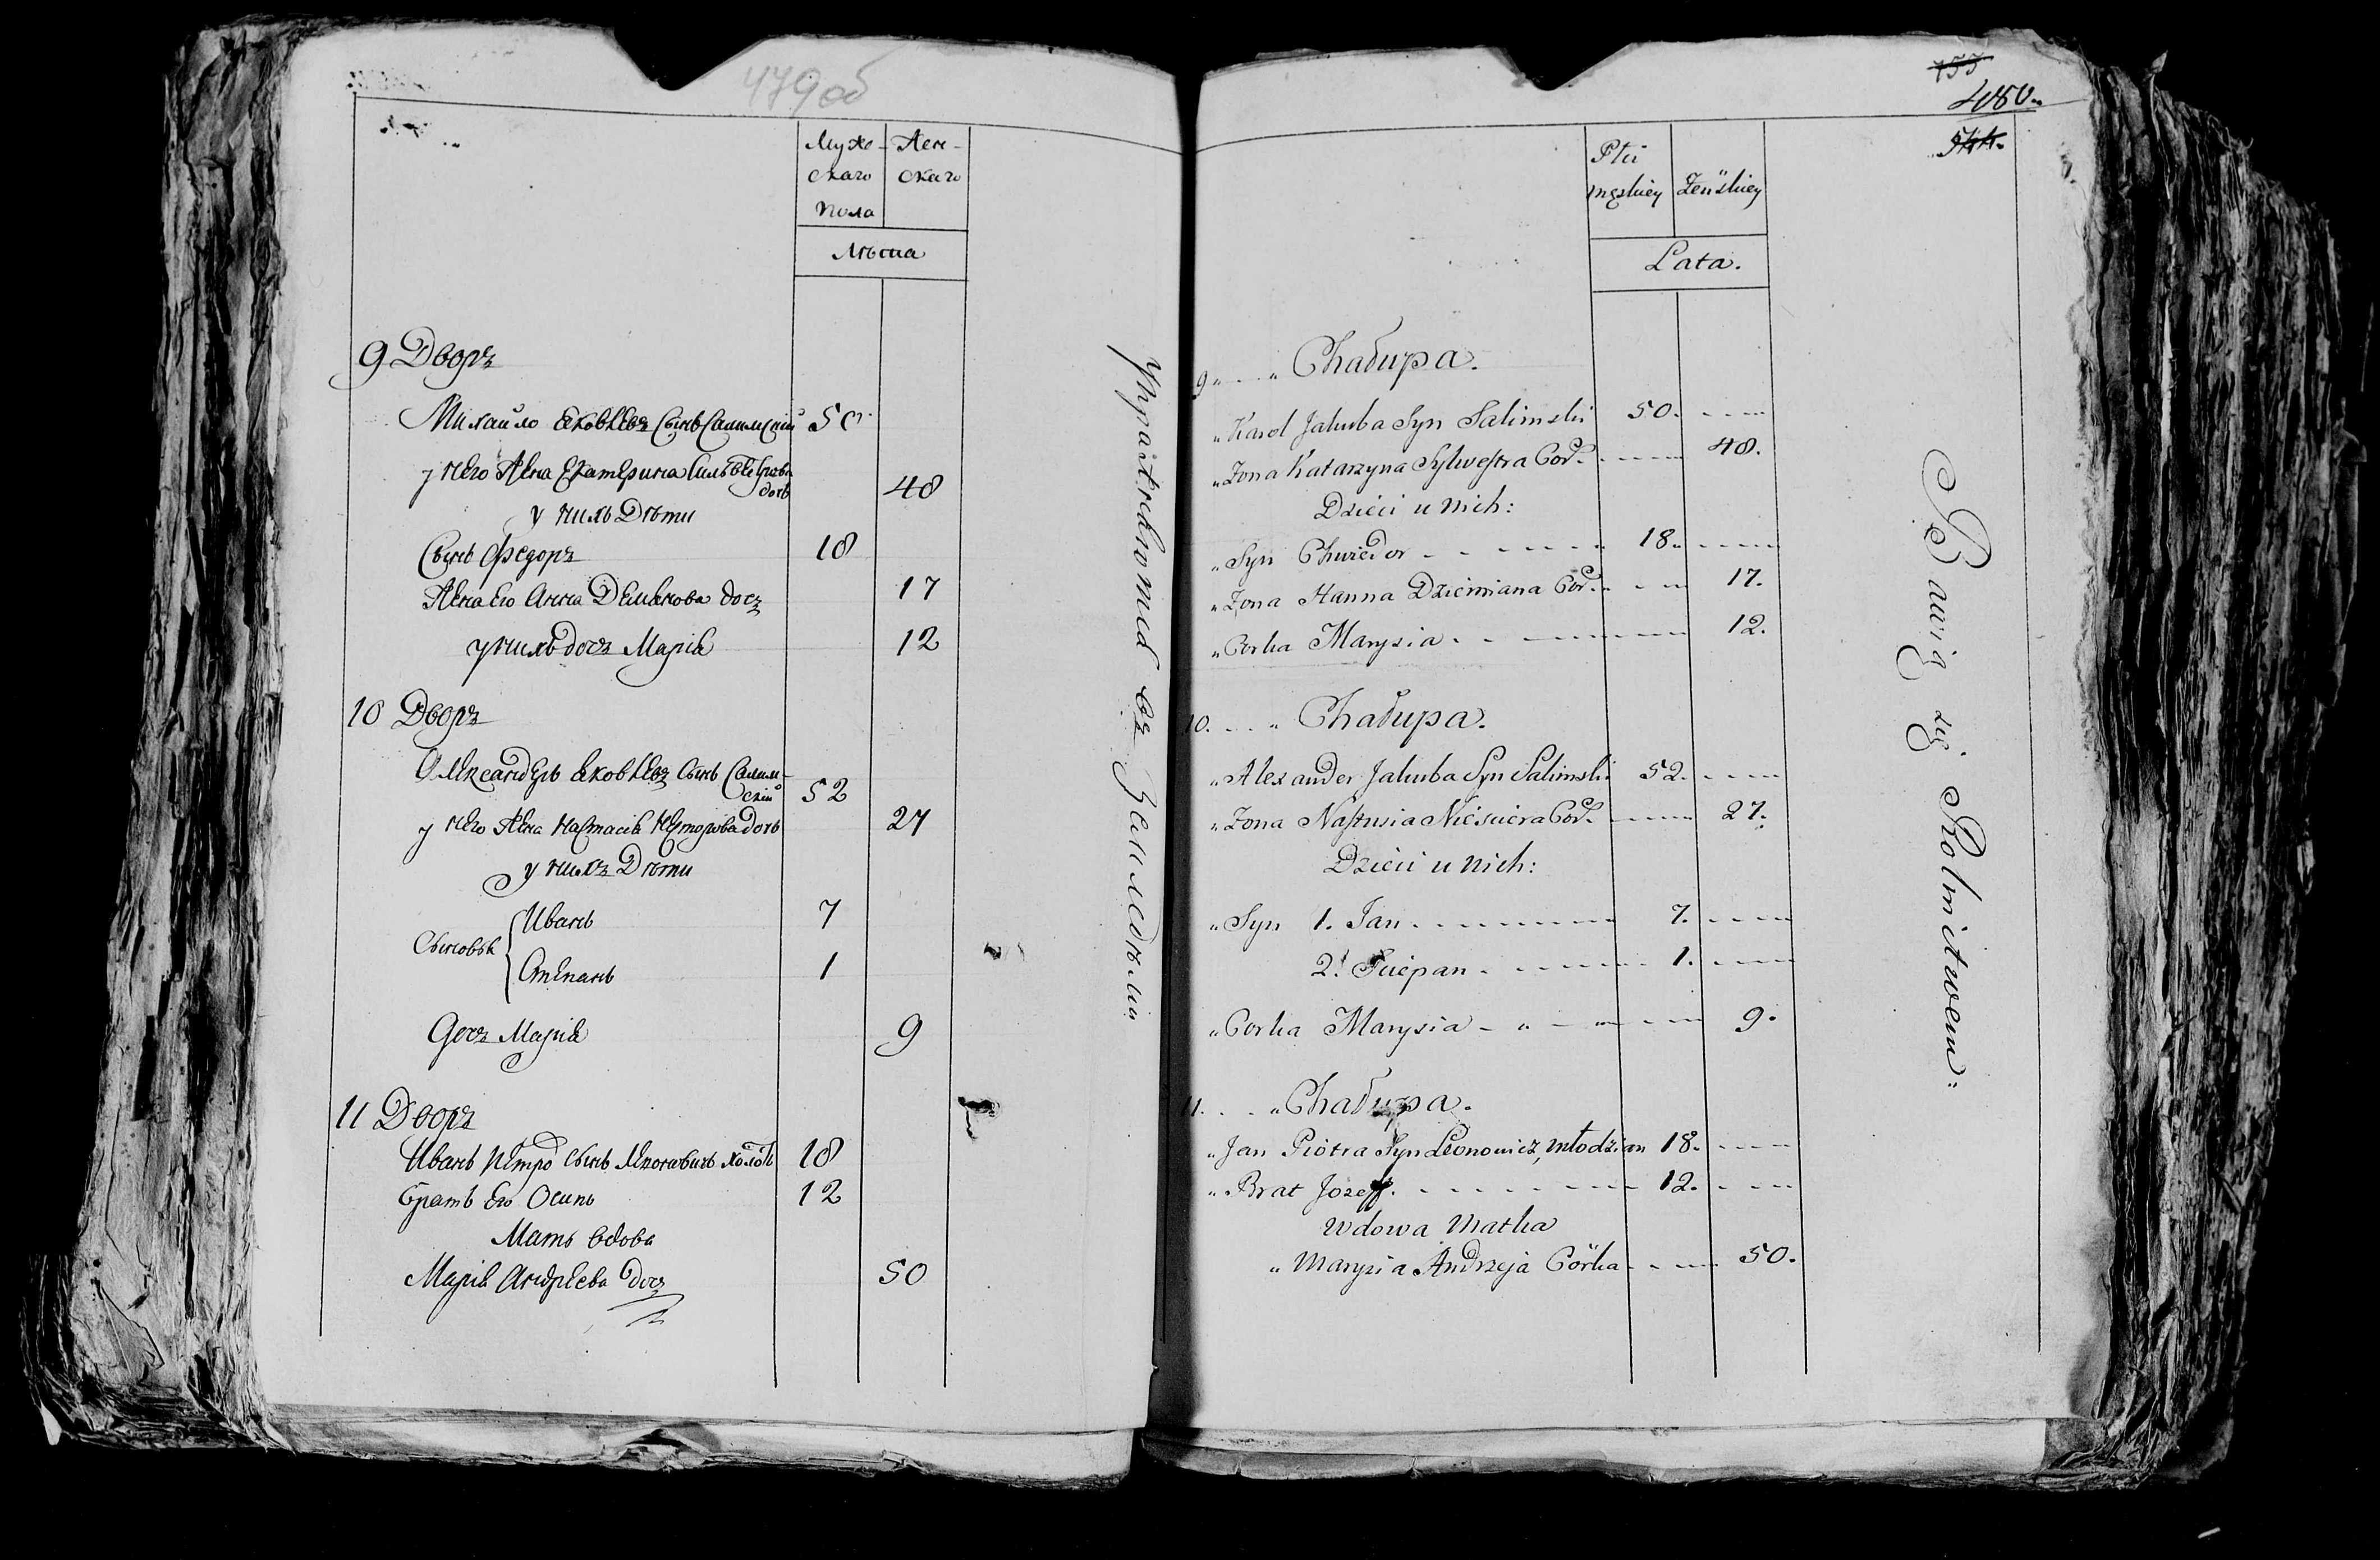 479 об
Муже-
скаго
пола
Жен-
скаго
Лѣта
9 Дворъ
Михайло Яковлевъ Сынъ Салимскій 50
у него Жена Екатерина Сильвестрова
дочь 48
у нихъ Дѣти
Сынъ Федоръ 18
Жена Его Анна Демянова дочъ 17
у нихъ дочъ Марія 12
10 Дворъ
Александеръ Яковлевъ Сынъ Салим-
скій 52
у него Жена Настасія Несторова Дочь 27
у нихъ Дѣти
Сыновья
Иванъ 7
Степанъ 1
Дочъ Марія 9
11 Дворъ
Иванъ Петро Сынъ Леоновичъ холостъ 18
братъ Его Осипъ 12
Мать вдова
Марія Андреева дочъ 50
Упражняются въ Земледѣліи
755
480
544.
Płci
męskiey
Zeńskiey
Lata.
9 Chałupa.
Karol Jakuba Syn Salimski 50.
Zona Katarzyna Sylwestra Cor. 48.
Dzieci u Nich:
Syn Chwiedor 18.
Zona Hanna Dziemiana Cor. 17.
Corka Marysia 12.
10. Chałupa.
Alexander Jakuba Syn Salimski 52.
Zona Nastusia Niesciera Cor. 27.
Dzieci u Nich:
Syn 1. Jan 7.
2. Sciepan 1.
Corka Marysia 9.
11. Chałupa.
Jan Piotra Syn Leonowicz, młodzian 18.
Brat Jozeff. 12.
Wdowa Matka
Marysia Andrzeja Córka 50.
Bawią się Rolnictwem: